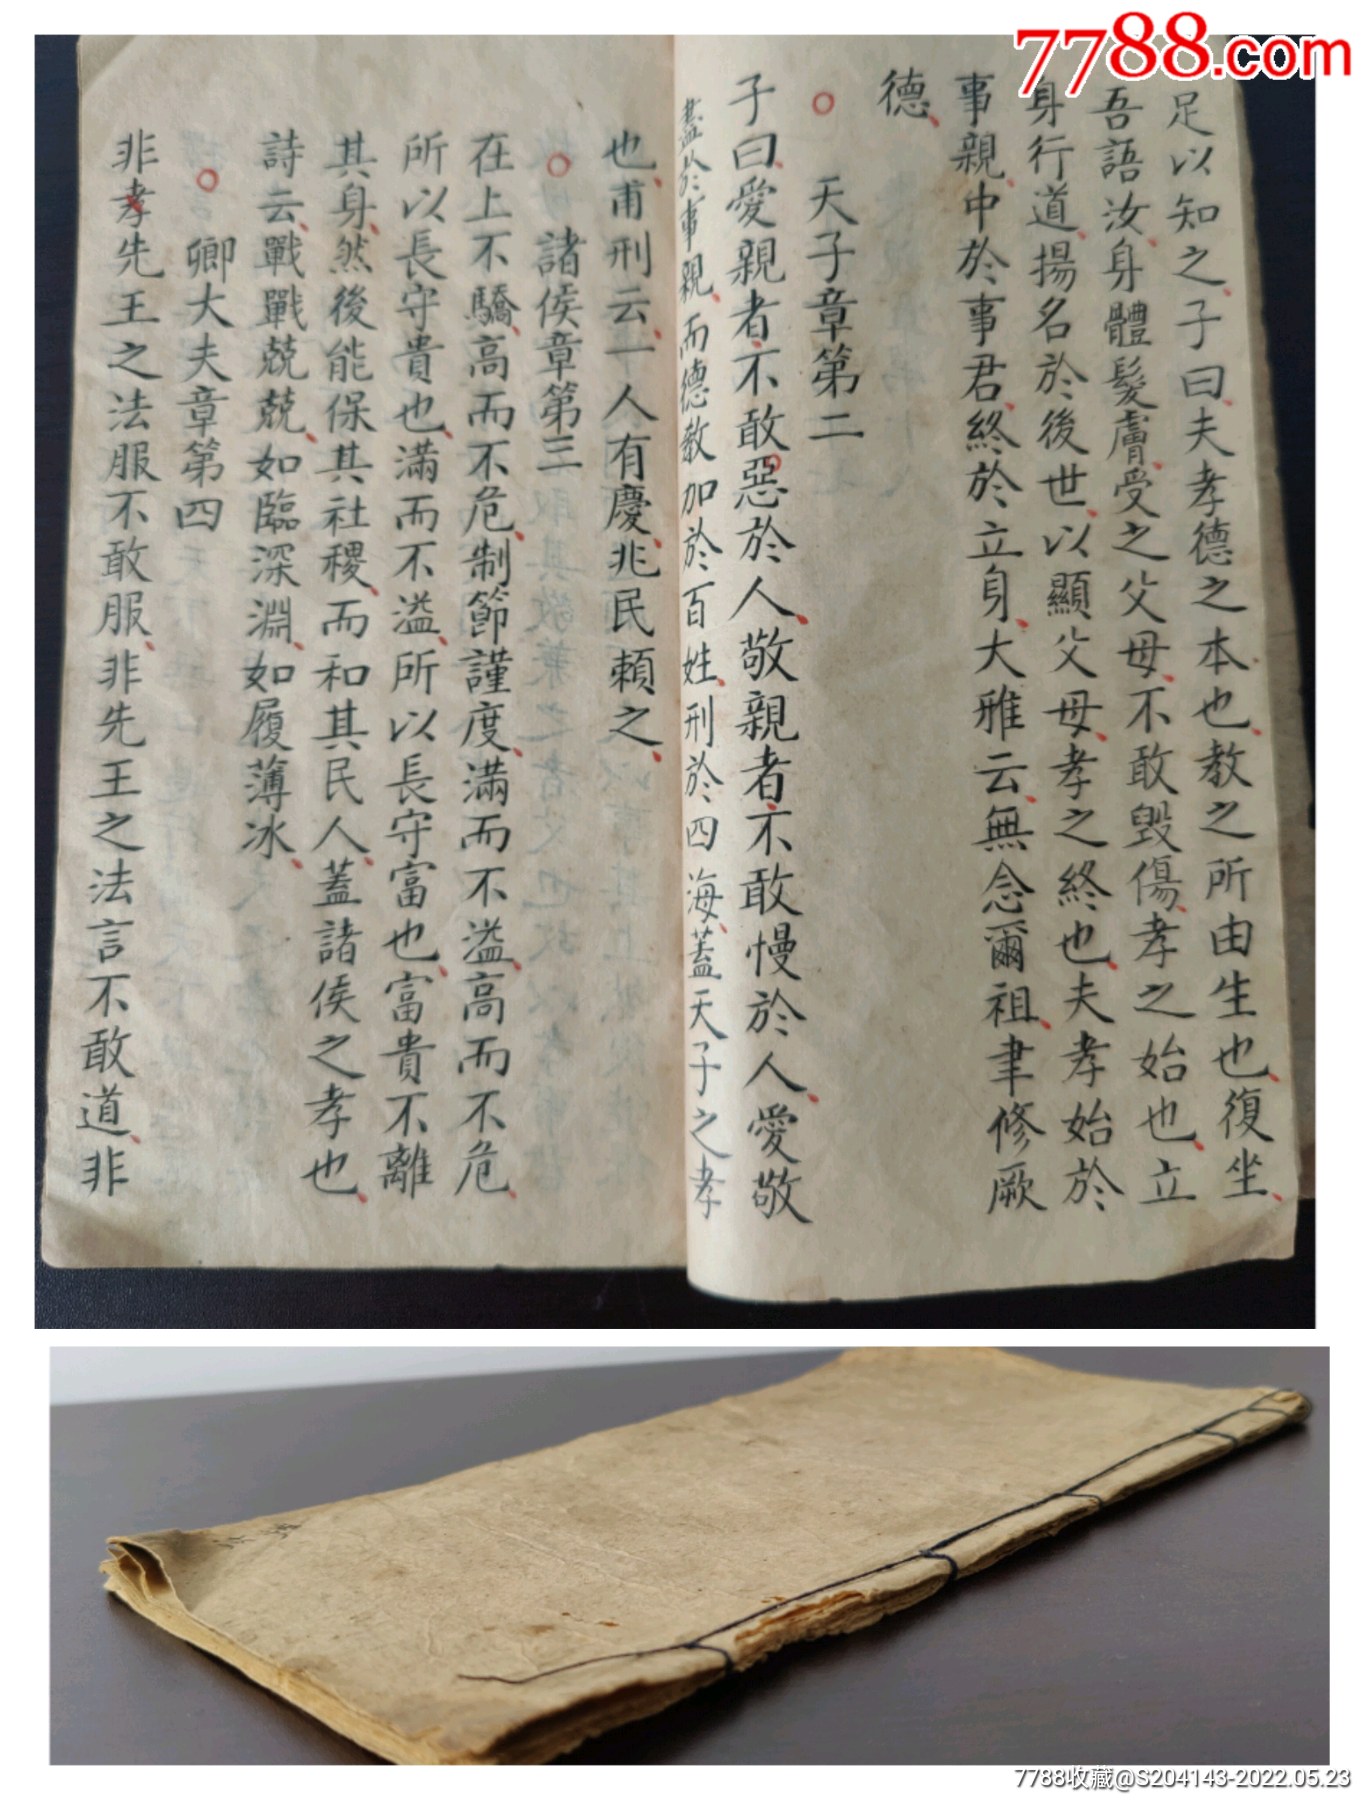 7788.com
足以知之子曰夫孝德之本也教之所由生也復坐
吾語汝身體髮膚受之父母不敢毀傷孝之始也立
身行道揚名於後世以顯父母孝之終也夫孝始於
事親中於事君終於立身大雅云無念爾祖聿修厥
德
天子章第二
子曰愛親者不敢惡於人敬親者不敢慢於人愛敬
蓋於事親而德教加於百姓刑於四海蓋天子之孝
也甫刑云一人有慶兆民賴之
諸侯章第三
在上不驕高而不危制節謹度滿而不溢高而不危
所以長守貴也滿而不溢所以長守富也富貴不離
其身然後能保其社稷而和其民人蓋諸侯之孝也
詩云戰戰兢兢如臨深淵如履薄冰
卿大夫章第四
非孝先王之法服不敢服非先王之法言不敢道非
7788收藏@S204143-2022.05.23